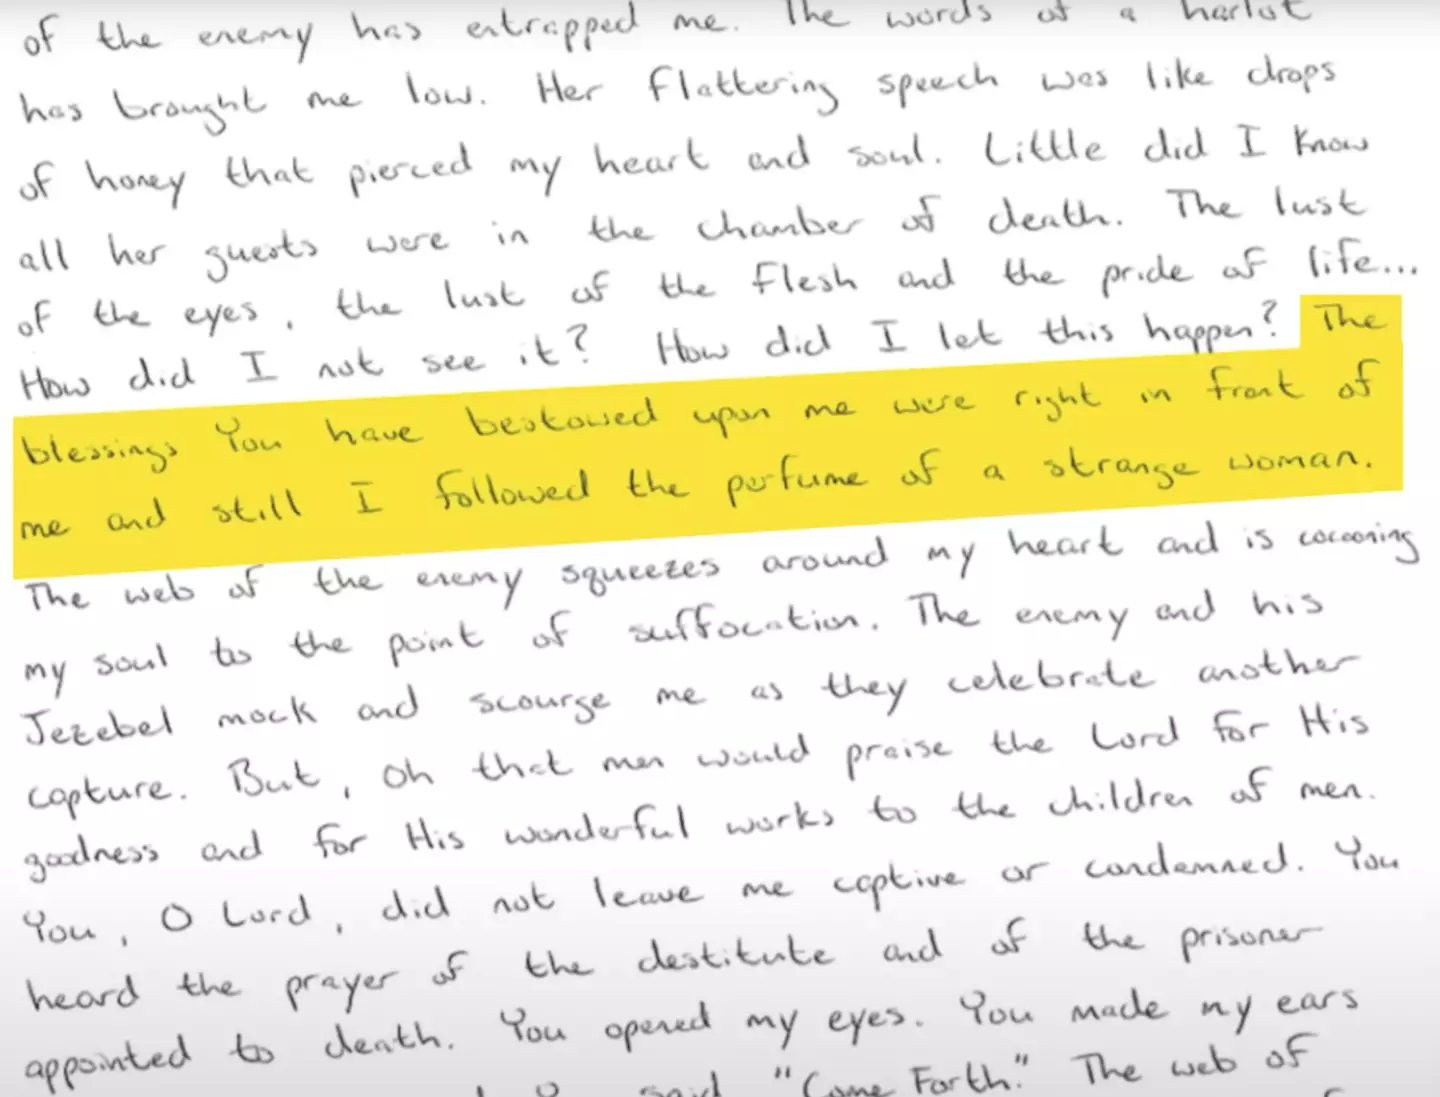 of the enemy has entrapped me. The words of a harlot
has brought me low. Her flattering speech was like drops
of honey that pierced my heart and soul. Little did I know
all her guests were in the chamber of death. The lust
of the eyes, the lust of the flesh and the pride of life...
How did I not see it? How did I let this happen? The
blessings You have bestowed upon me were right in front of
me and still I followed the perfume of a strange woman.
The web of the enemy squeezes around my heart and is cocooning
my soul to the point of suffocation. The enemy and his
Jezebel mock and scourge me as they celebrate another
capture. But, oh that men would praise the Lord for His
goodness and for His wonderful works to the children of men.
You, O Lord, did not leave me captive or condemned. You
heard the prayer of the destitute and of the prisoner
appointed to death. You opened my eyes. You made my ears
said "Come Forth." The web of